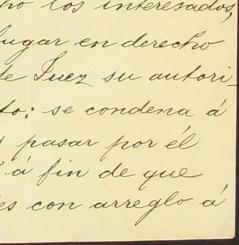 los interesados,
lugar en derecho
de Juez su autori-
to; se condena á
pasar por él
á fin de que
es con arreglo á